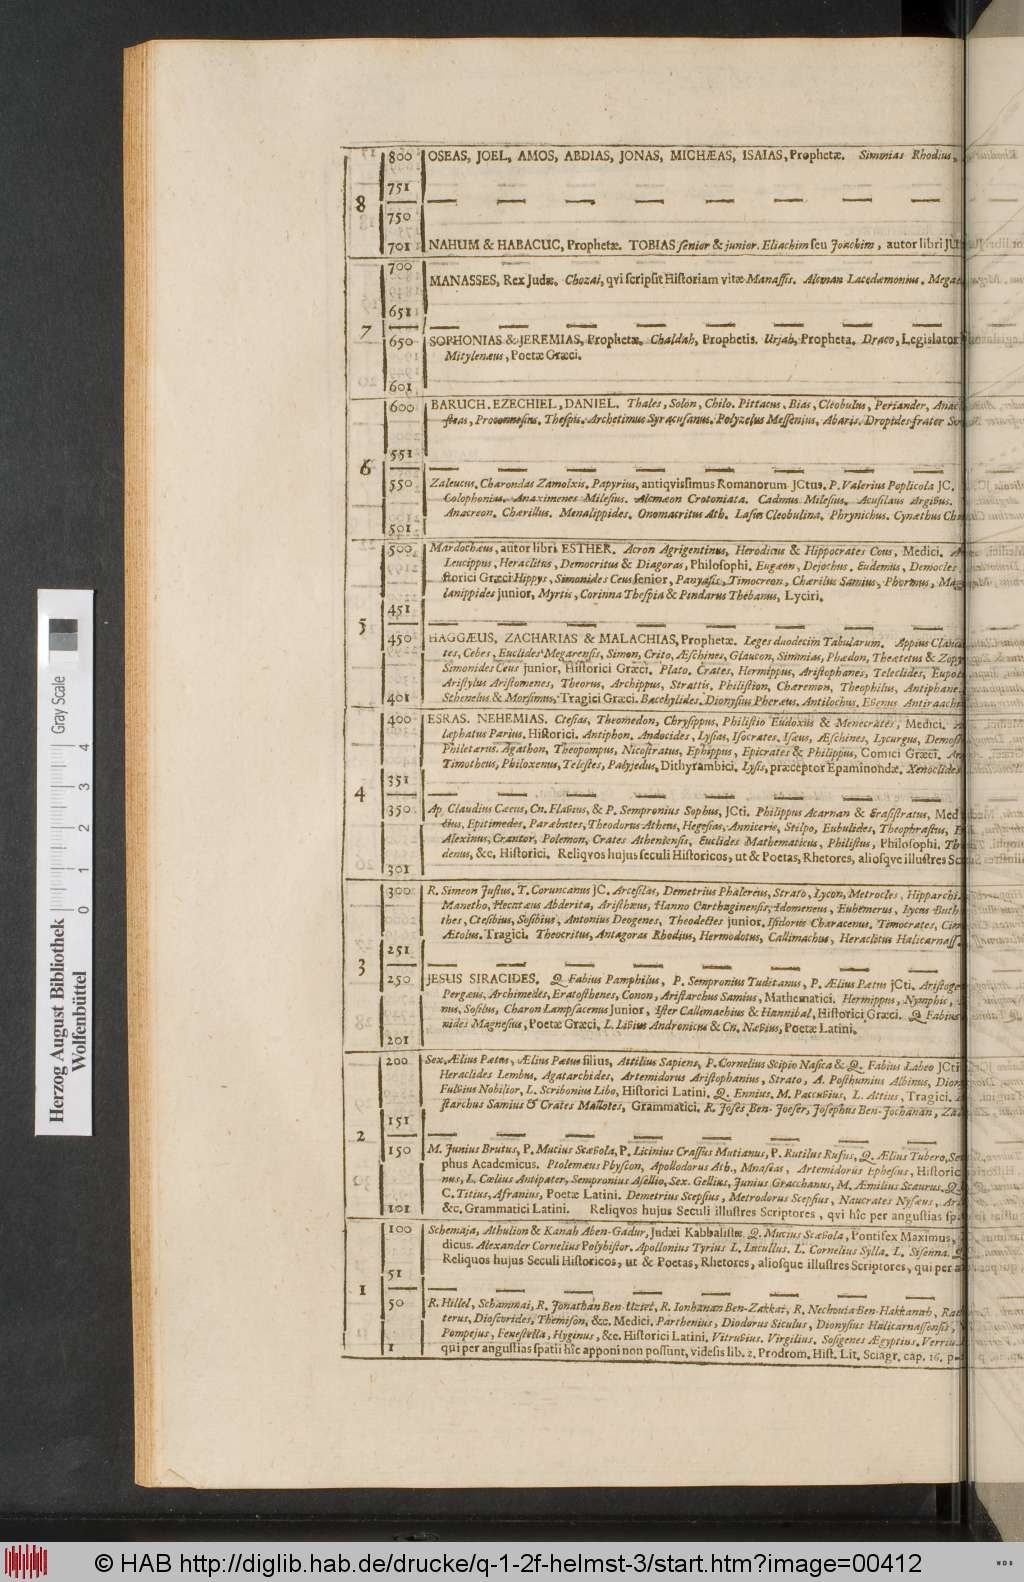 800 OSEAS, JOEL, AMOS, ABDIAS, JONAS, MICHÆAS, ISAIAS, Prophetæ. Simmias Rhodius,
751
8
750
701 NAHUM & HABACUC, Prophetæ. TOBIAS senior & junior. Eliachim seu Joachim, autor libri
700
MANASSES, Rex Judæ. Chozai, qvi scripsit Historiam vitæ Manassis. Alcman Lacedæmonius.
651
7
650 SOPHONIAS & JEREMIAS, Prophetæ. Chaldah, Prophetis. Urjah, Propheta. Draco, Legislator
Mitylenæus, Poetæ Græci.
601
600 BARUCH. EZECHIEL, DANIEL. Thales, Solon, Chilo. Pittacus, Bias, Cleobulus, Periander,
steas, Proconnesius. Thespis. Archetimus Syracusanus. Polyzelus Messenius, Abaris. Dropides frater
551
6
550 Zaleucus. Charondas Zamolxis. Papyrius, antiqvissimus Romanorum JCtus. P. Valerius Poplicola JC.
Colophonius. Anaximenes Milesius. Alcmæon Crotoniata. Cadmus Milesius. Acusilaus Argivus.
Anacreon. Chærillus. Menalippides. Onomacritus Ath. Lasus Cleobulina. Phrynichus. Cynæthus
501
500 Mardochæus, autor libri ESTHER. Acron Agrigentinus, Herodicus & Hippocrates Cous, Medici.
Leucippus, Heraclitus, Democritus & Diagoras, Philosophi. Eugæon, Dejochus. Eudemus, Democles
storici Græci Hippys, Simonides Ceus senior, Panyasis, Timocreon, Chærilus Samius, Phormus,
lanippides junior, Myrtis, Corinna Thespia & Pindarus Thebanus, Lyrici.
451
5
450 HAGGÆUS, ZACHARIAS & MALACHIAS, Prophetæ. Leges duodecim Tabularum. Appius
tes, Cebes, Euclides Megarensis, Simon, Crito, Æschines, Glaucon, Simmias, Phædon, Theætetus &
Simonides Ceus junior, Historici Græci. Plato. Crates, Hermippus, Aristophanes, Teleclides,
Aristylus Aristomenes, Theorus, Archippus, Strattis. Philistion, Chæremon, Theophilus,
401 Sthenelus & Morsimus, Tragici Græci. Bacchylides. Dionysius Pheræus. Antilochus,
400 ESRAS. NEHEMIAS. Ctesias, Theomedon, Chrysippus, Philistio Eudoxus & Menecrates, Medici.
læphatus Parius. Historici. Antiphon. Andocides, Lysias, Isocrates. Isæus, Æschines, Lycurgus,
Philetærus. Agathon, Theopompus, Nicostratus, Ephippus, Epicrates & Philippus, Comici Græci.
Timotheus, Philoxenus, Telestes, Palyjedus, Dithyrambici. Lysis, præceptor Epaminondæ.
351
4
350 Ap. Claudius Cæcus, Cn. Flavius, & P. Sempronius Sophus, JCti. Philippus Acarnan & Erasistratus,
Epitimedes. Paræbates, Theodorus Atheus, Hegesias, Anniceris, Stilpo, Eubulides, Theophrastus,
Alexinus, Crantor, Polemon, Crates Atheniensis, Euclides Mathematicus, Philistus, Philosophi.
denus, &c. Historici. Reliqvos hujus seculi Historicos, ut & Poetas, Rhetores, aliosqve illustres
301
300 R. Simeon Justus. T. Coruncanus JC. Arcesilas, Demetrius Phalereus, Strato, Lycon, Metrocles,
Manetho, Hecatæus Abderita, Aristhæus, Hanno Carthaginensis, Idomeneus, Euhemerus, Lycus
thes, Ctesibius, Sosibius, Antonius Deogenes, Theodectes junior. Isidorus Characenus. Timocrates,
Ætolus. Tragici. Theocritus, Antagoras Rhodius, Hermodotus, Callimachus, Heraclitus
251
3
250 JESUS SIRACIDES. Q. Fabius Pamphilus, P. Sempronius Tuditanus, P. Ælius Pætus JCti.
Pergæus, Archimedes, Eratosthenes, Conon, Aristarchus Samius, Mathematici. Hermippus, Nymphis,
nus, Sosilus, Charon Lampsacenus Junior, Ister Callimachius & Hannibal, Historici Græci. Q. Fabius
nides Magnesius, Poetæ Græci, L. Livius Andronicus & Cn. Nævius, Poetæ Latini.
201
200 Sex. Ælius Pætus, Ælius Pætus filius, Attilius Sapiens, P. Cornelius Scipio Nasica & Q. Fabius Labeo JCti
Heraclides Lembus. Agatarchides, Artemidorus Aristophanius, Strato, A. Posthumius Albinus,
Fulvius Nobilior. L. Scribonius Libo, Historici Latini. Q. Ennius. M. Paccuvius, L. Attius, Tragici.
starchus Samius & Crates Mallotes, Grammatici. R. Joses Ben-Joeser, Josephus Ben-Jochanan,
151
2
150 M. Junius Brutus, P. Mucius Scævola, P. Licinius Crassus Mutianus, P. Rutilus Rufus, Q. Ælius Tubero,
phus Academicus. Ptolemæus Physcon, Apollodorus Ath., Mnasias, Artemidorus Ephesius,
nus, L. Cœlius Antipater, Sempronius Asellio, Sex. Gellius, Junius Gracchanus, M. Æmilius Scaurus.
C. Titius, Afranius, Poetæ Latini. Demetrius Scepsius, Metrodorus Scepsius, Naucrates Nysæus,
101 &c. Grammatici Latini. Reliqvos hujus Seculi illustres Scriptores, qvi hîc per angustias
100 Schemaja, Athulion & Kanah Aben-Gadur, Judæi Kabbalistæ. Q. Mucius Scævola, Pontifex Maximus,
dicus. Alexander Cornelius Polyhistor. Apollonius Tyrius L. Lucullus. L. Cornelius Sylla. L. Sisenna.
Reliquos hujus Seculi Historicos, ut & Poetas, Rhetores, aliosque illustres Scriptores, qui per
51
1
50 R. Hillel, Schammai, R. Jonathan Ben-Uziel, R. Ionhanan Ben-Zakkai, R. Nechonia Ben-Hakkanah,
terus, Dioscorides, Themison, &c. Medici. Parthenius, Diodorus Siculus, Dionysius Halicarnassensis,
Pompejus, Fenestella, Hyginus, &c. Historici Latini. Vitruvius. Virgilius. Sosigenes Ægyptius.
1 qui per angustias spatii hîc apponi non possunt, videsis lib. 2. Prodrom. Hist. Lit. Sciagr. cap. 16.
Herzog August Bibliothek
Wolfenbüttel
Gray Scale
0 1 2 3 4
© HAB http://diglib.hab.de/drucke/q-1-2f-helmst-3/start.htm?image=00412